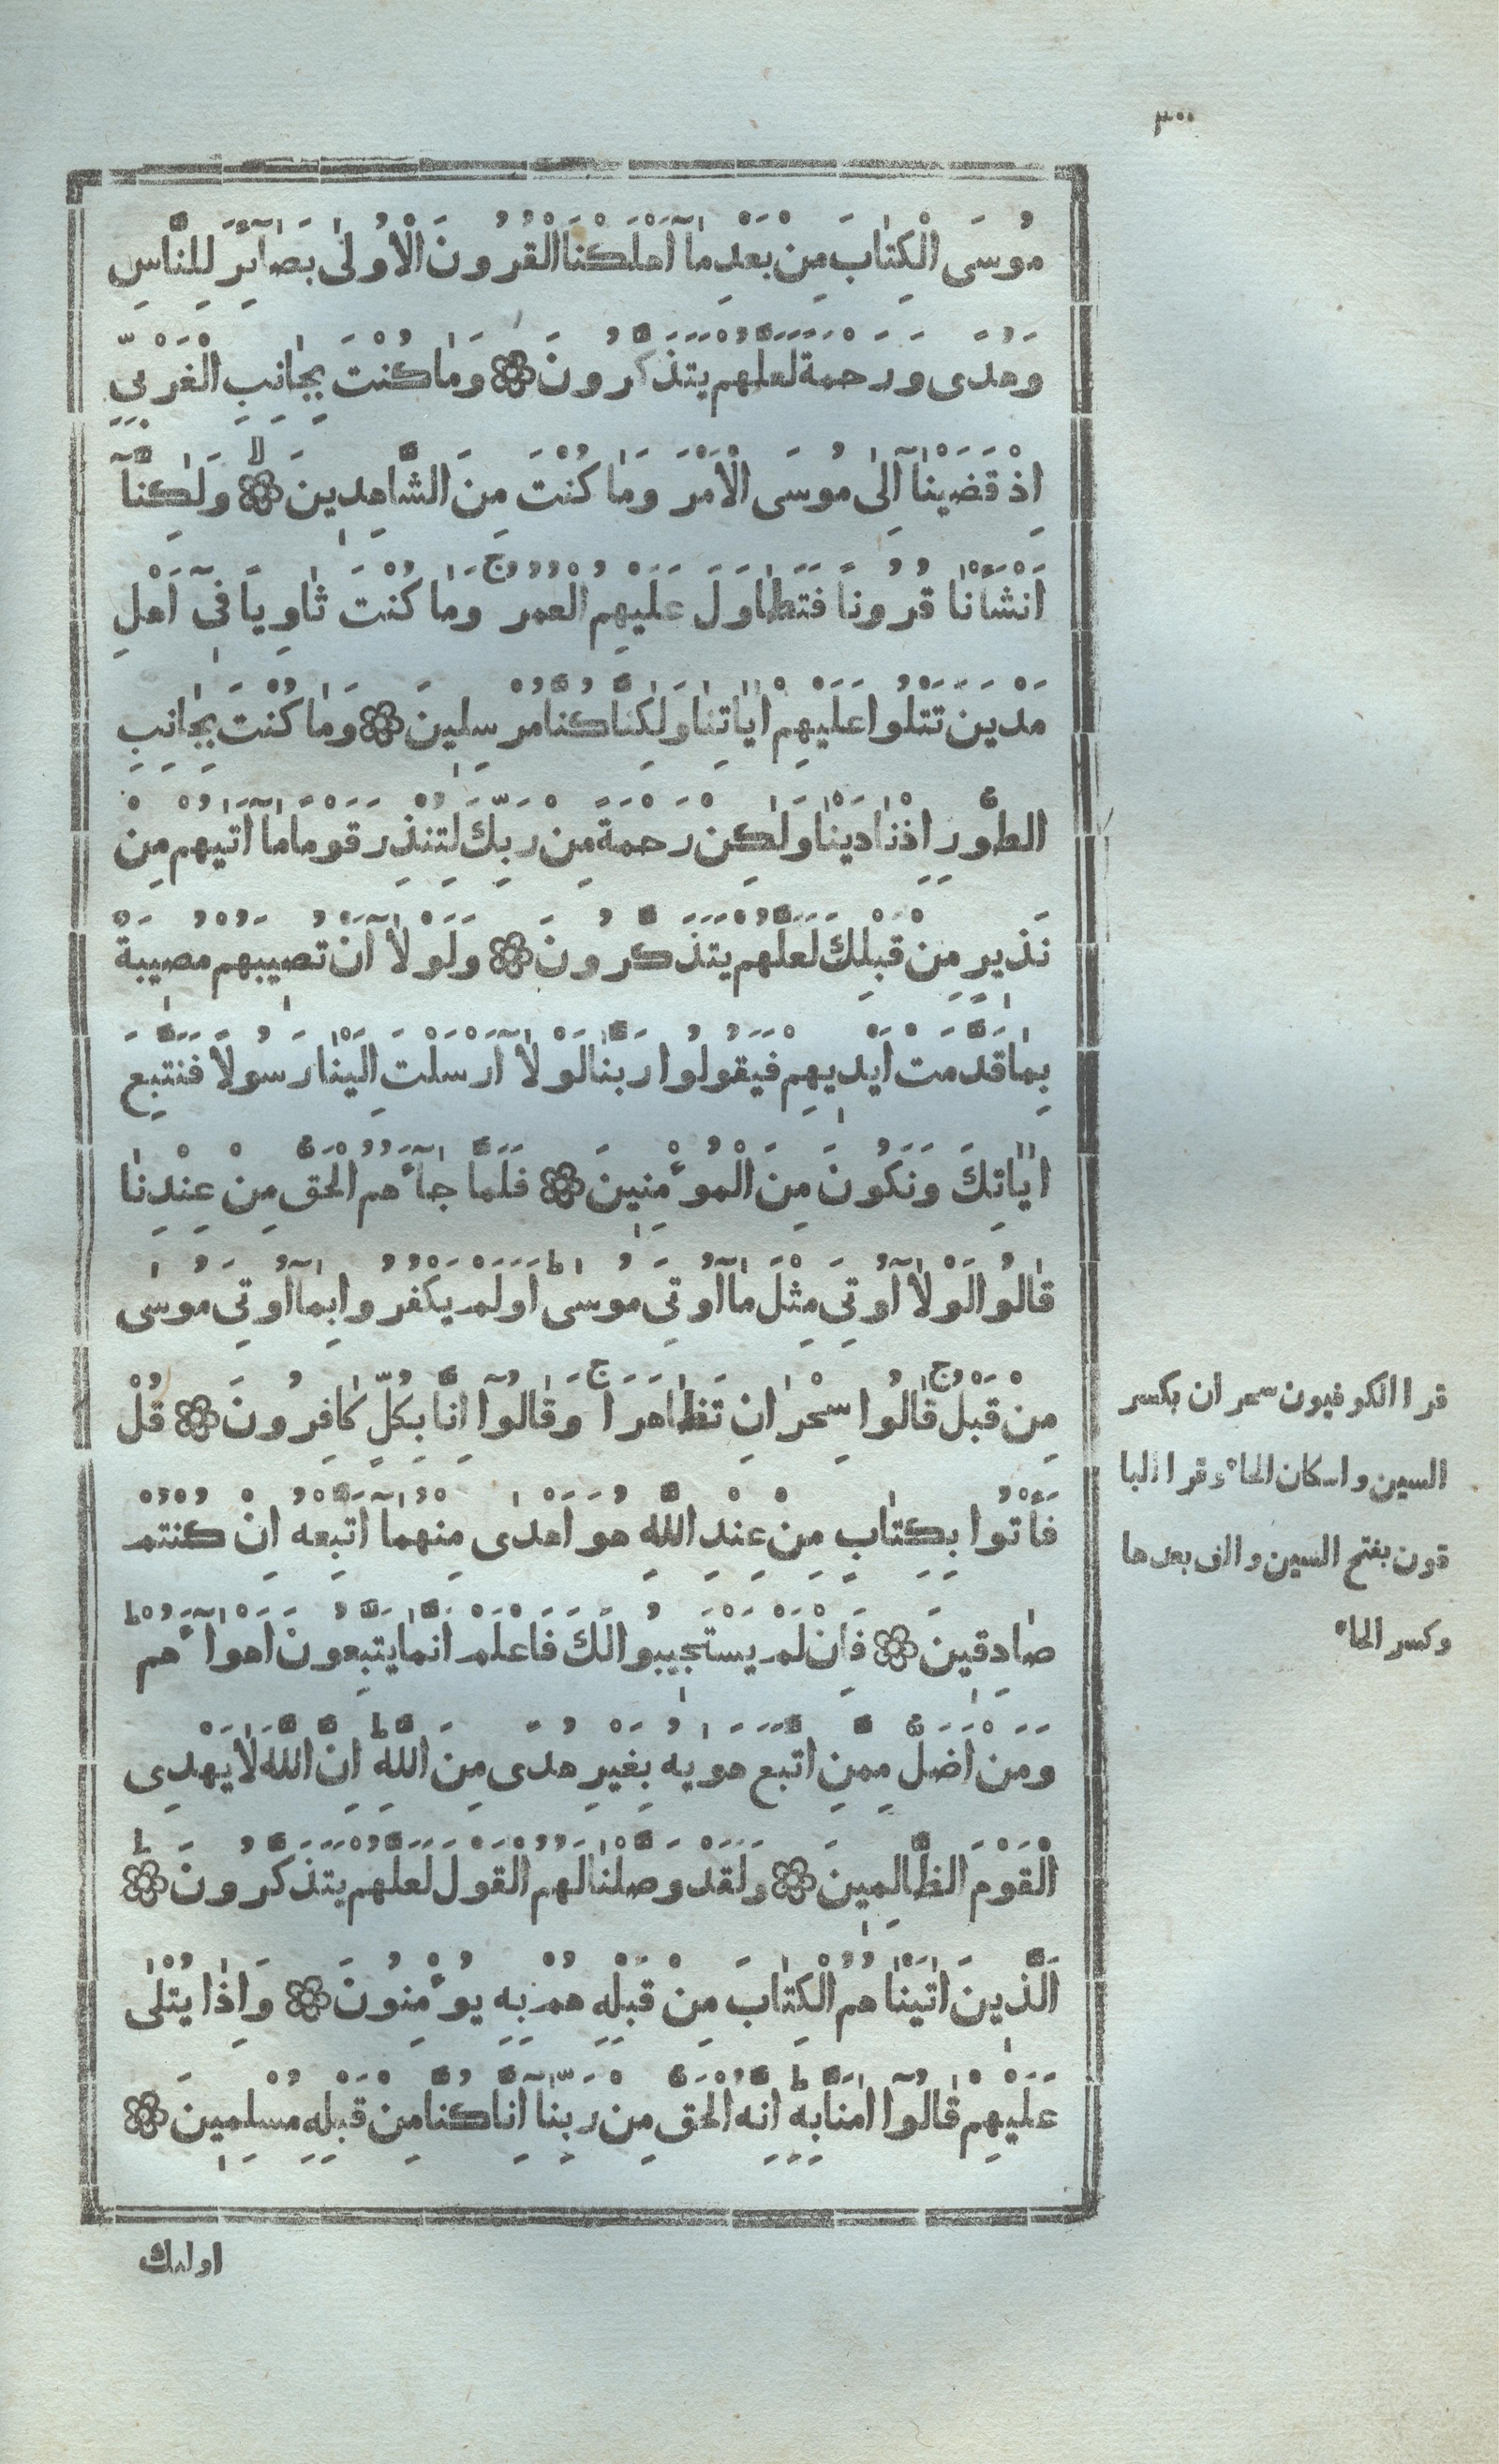 ٣٠٠
مُوسَى الْكِتٰابَ مِنْ بَعْدِ مٰآ اَهْلَكْنَا الْقُرُونَ الْاُولٰى بَصٰآئِرَ لِلنَّاسِ
وَهُدًى وَرَحْمَةً لَعَلَّهُمْ يَتَذَكَّرُونَ وَمٰا كُنْتَ بِجٰانِبِ الْغَرْبِيِّ
اِذْ قَضَيْنٰآ اِلٰى مُوسَى الْاَمْرَ وَمٰا كُنْتَ مِنَ الشَّاهِدِينَ ۙ وَلٰكِنَّآ
اَنْشَأْنٰا قُرُونًا فَتَطٰاوَلَ عَلَيْهِمُ الْعُمُرُ ۚ وَمٰا كُنْتَ ثٰاوِيًا فِىٓ اَهْلِ
مَدْيَنَ تَتْلُوا عَلَيْهِمْ اٰيٰاتِنٰا وَلٰكِنَّا كُنَّا مُرْسِلِينَ وَمٰا كُنْتَ بِجٰانِبِ
الطُّورِ اِذْ نٰادَيْنٰا وَلٰكِنْ رَحْمَةً مِنْ رَبِّكَ لِتُنْذِرَ قَوْمًا مٰآ اَتٰيهُمْ مِنْ
نَذِيرٍ مِنْ قَبْلِكَ لَعَلَّهُمْ يَتَذَكَّرُونَ وَلَوْلٰآ اَنْ تُصِيبَهُمْ مُصِيبَةٌ
بِمٰا قَدَّمَتْ اَيْدِيهِمْ فَيَقُولُوا رَبَّنٰا لَوْلٰآ اَرْسَلْتَ اِلَيْنٰا رَسُولًا فَنَتَّبِعَ
اٰيٰاتِكَ وَنَكُونَ مِنَ الْمُؤْمِنِينَ فَلَمَّا جٰآءَهُمُ الْحَقُّ مِنْ عِنْدِنٰا
قٰالُوا لَوْلٰآ اُوتِىَ مِثْلَ مٰآ اُوتِىَ مُوسٰى ؕ اَوَلَمْ يَكْفُرُوا بِمٰآ اُوتِىَ مُوسٰى
مِنْ قَبْلُ ۚ قٰالُوا سِحْرٰانِ تَظٰاهَرٰا ۚ وَقٰالُوٓا اِنَّا بِكُلٍّ كٰافِرُونَ قُلْ
فَأْتُوا بِكِتٰابٍ مِنْ عِنْدِ اللّٰهِ هُوَ اَهْدٰى مِنْهُمٰآ اَتَّبِعْهُ اِنْ كُنْتُمْ
صٰادِقِينَ فَاِنْ لَمْ يَسْتَجِيبُوا لَكَ فَاعْلَمْ اَنَّمٰا يَتَّبِعُونَ اَهْوٰآءَهُمْ ؕ
وَمَنْ اَضَلُّ مِمَّنِ اتَّبَعَ هَوٰيهُ بِغَيْرِ هُدًى مِنَ اللّٰهِ ؕ اِنَّ اللّٰهَ لٰا يَهْدِى
الْقَوْمَ الظَّالِمِينَ وَلَقَدْ وَصَّلْنٰا لَهُمُ الْقَوْلَ لَعَلَّهُمْ يَتَذَكَّرُونَ ؕ
اَلَّذِينَ اٰتَيْنٰاهُمُ الْكِتٰابَ مِنْ قَبْلِهِ هُمْ بِهِ يُؤْمِنُونَ وَاِذٰا يُتْلٰى
عَلَيْهِمْ قٰالُوٓا اٰمَنَّا بِهِ ؕ اِنَّهُ الْحَقُّ مِنْ رَبِّنٰآ اِنَّا كُنَّا مِنْ قَبْلِهِ مُسْلِمِينَ
اولىك
قرا الكوفيون سحران بكسر
السين واسكان الحاء وقرا البا
قون بفتح السين والف بعدها
وكسر الحاء